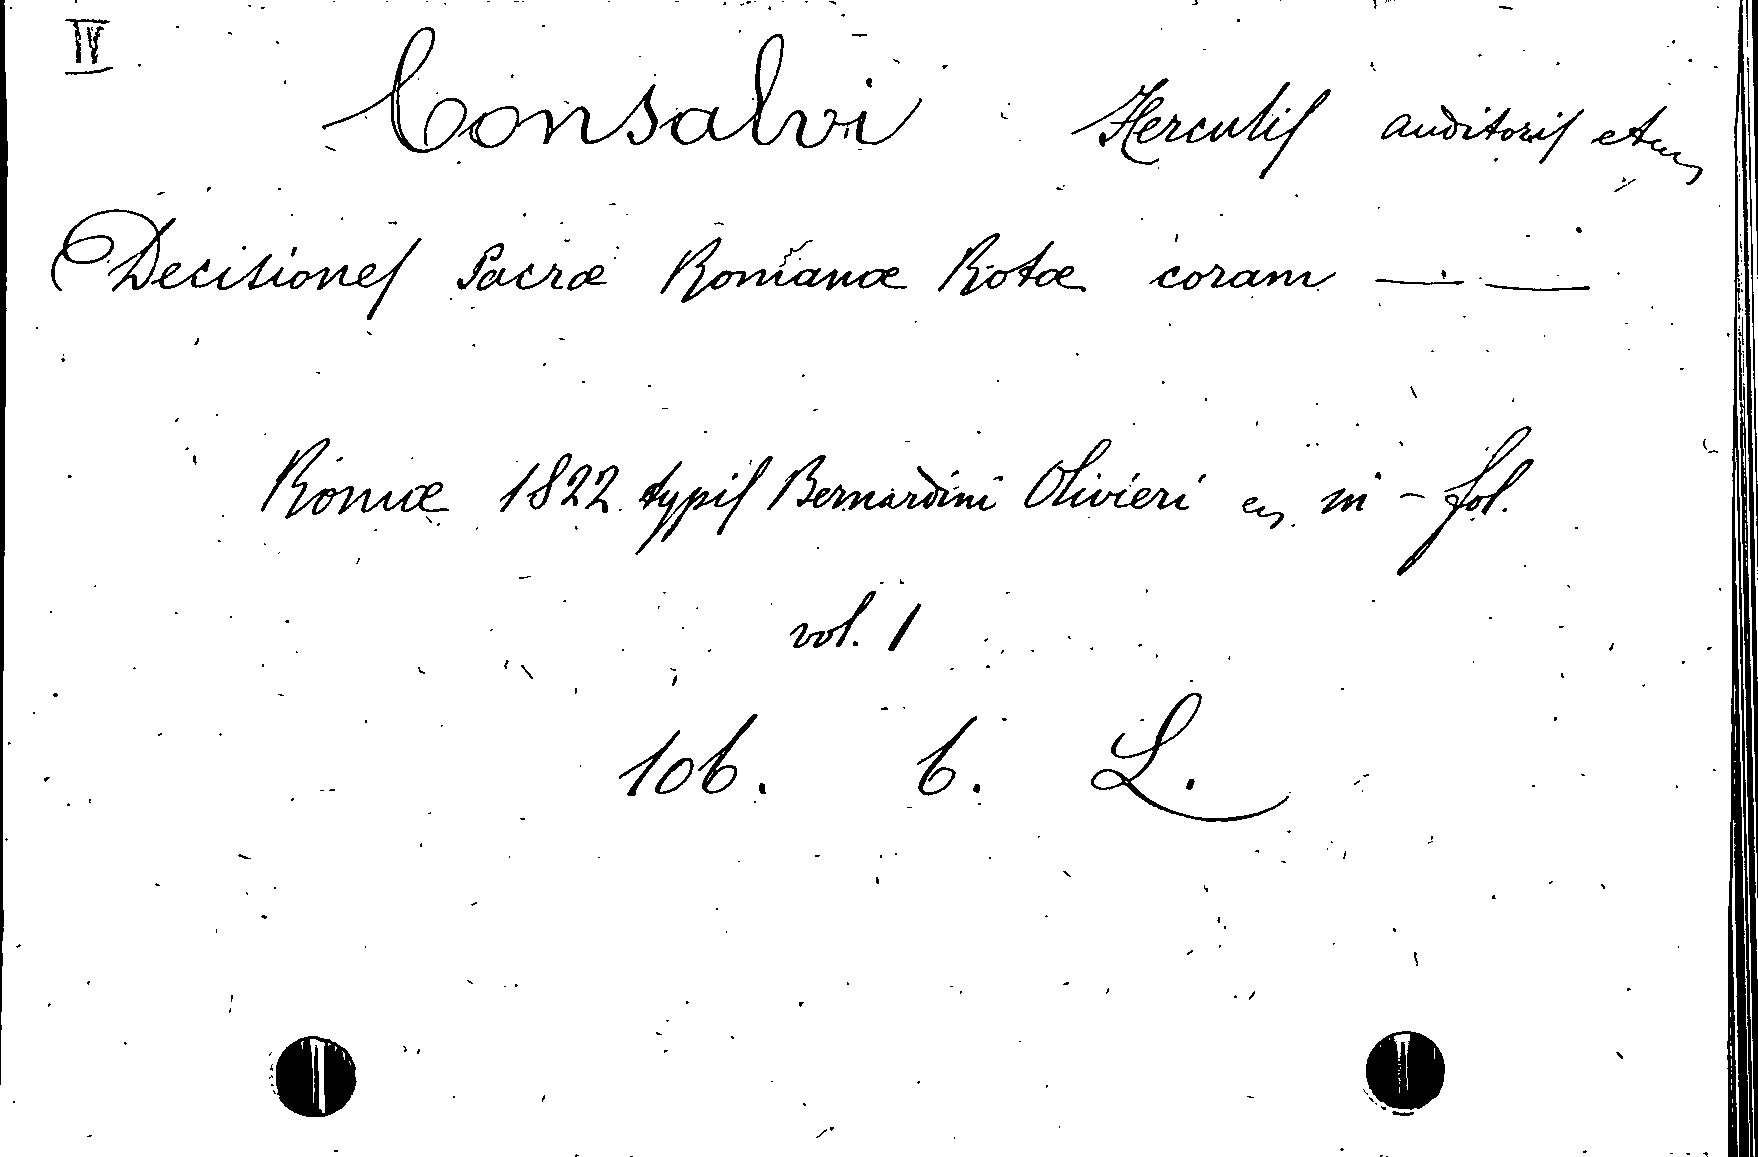 IV
Consalvi Herculis auditoris etc
Decisiones Sacræ Romanæ Rotæ coram — —
Romæ 1822 typis Bernardini Olivieri in-fol.
vol. 1
106. 6. L.